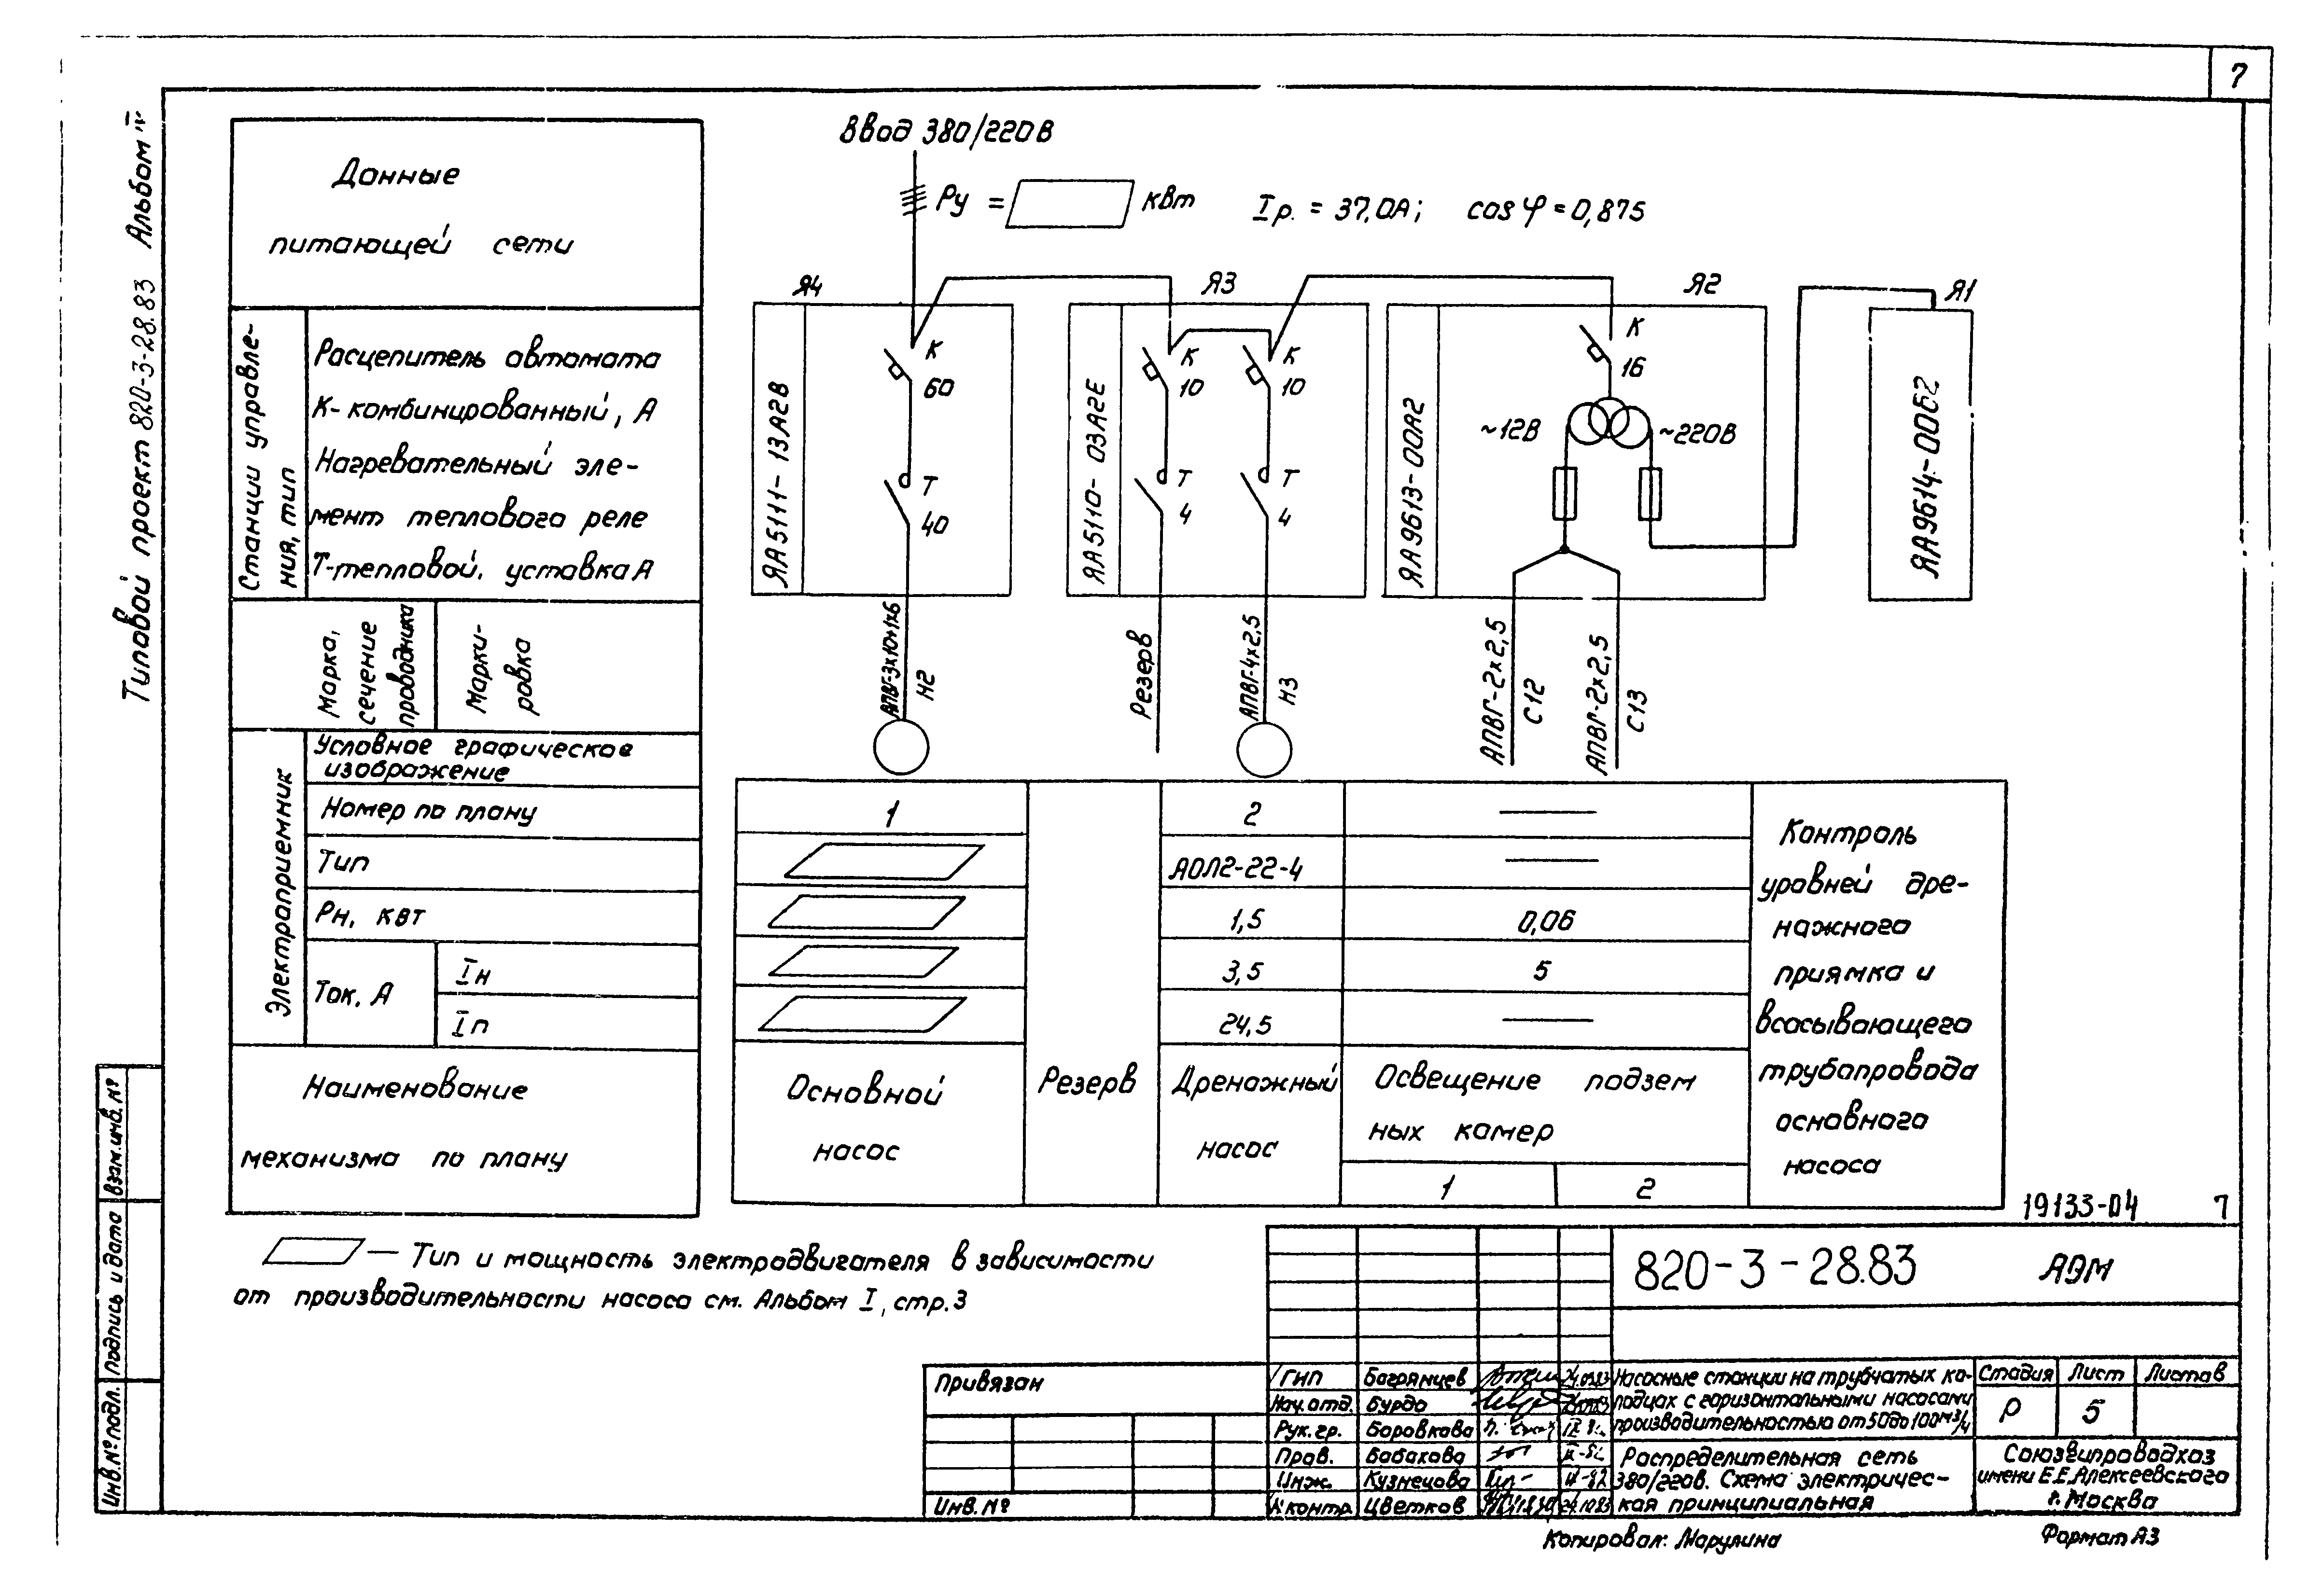 7
Типовой проект 820-3-28.83 Альбом IV
Данные
питающей сети
Станции управле-
ния, тип
Расцепитель автомата
К-комбинированный, А
Нагревательный эле-
мент теплового реле
Т-тепловой, уставка А
Марка,
сечение
проводника
Марки-
ровка
Электроприемник
Условное графическое
изображение
Номер по плану
Тип
Рн, квт
Ток, А
Iн
Iп
Наименование
механизма по плану
Ввод 380/220В
Ру = квт Iр. = 37,0А; cos φ = 0,875
Я4
ЯА5111-13А2В
К
60
Т
40
АПВГ-3х10+1х6
Н2
Я3
ЯА5110-03А2Е
К
10
Т
4
К
10
Т
4
Резерв
АПВГ-4х2,5
Н3
Я2
ЯА9613-00А2
К
16
~12В
~220В
АПВГ-2х2,5
С12
АПВГ-2х2,5
С13
Я1
ЯА9614-00Б2
1
2
АОЛ2-22-4
1,5
0,06
3,5
5
24,5
Основной
насос
Резерв
Дренажный
насос
Освещение подзем
ных камер
1 2
Контроль
уровней дре-
нажного
приямка и
всасывающего
трубопровода
основного
насоса
19133-04 7
— Тип и мощность электродвигателя в зависимости
от производительности насоса см. Альбом I, стр.3
Взам.инв.№
Подпись и дата
Инв.№ подл.
820-3-28.83 АЭМ
Привязан
Инв.№
ГИП Багрянцев
Нач.отд. Бурдо
Рук.гр. Боровкова
Пров. Бабахова
Инж. Кузнецова
Н контр. Цветков
Насосные станции на трубчатых ко-
лодцах с горизонтальными насосами
производительностью от 50 до 100 м³/ч
Стадия Лист Листов
Р 5
Распределительная сеть
380/220в. Схема электричес-
кая принципиальная
Союзгипроводхоз
имени Е.Е.Алексеевского
г.Москва
Копировал: Марулина
Формат А3